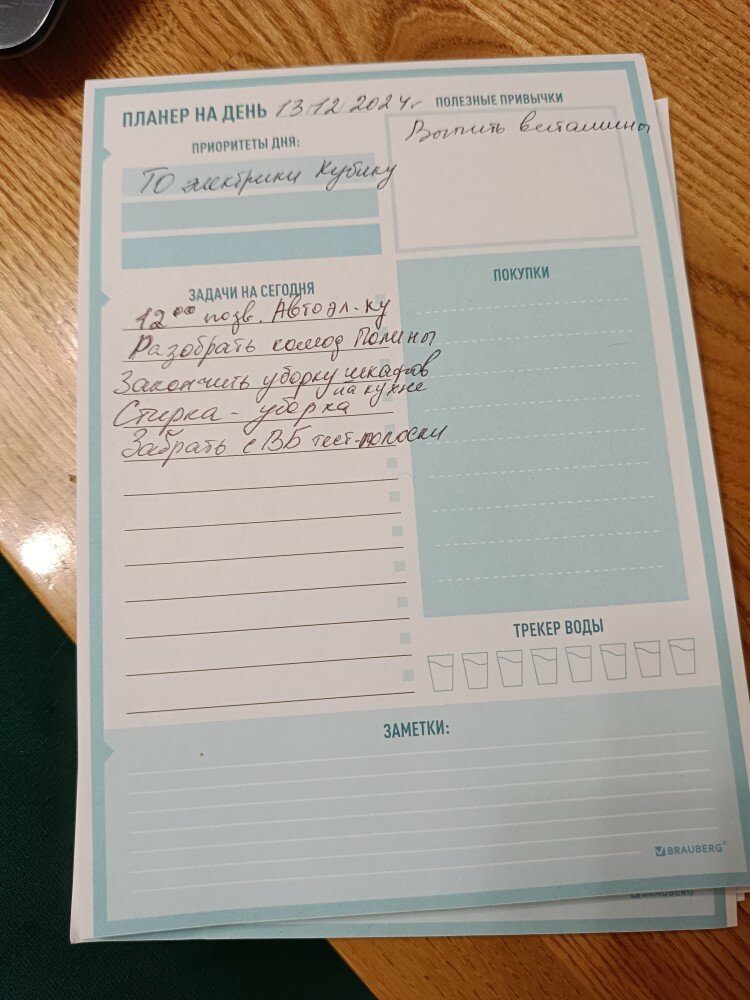 ПЛАНЕР НА ДЕНЬ 13.12.2024г.
ПОЛЕЗНЫЕ ПРИВЫЧКИ
Выпить витамины
ПРИОРИТЕТЫ ДНЯ:
ТО электрики Кубику
ЗАДАЧИ НА СЕГОДНЯ
12 00 позв. Автоэл-ку
Разобрать комод Полины
Закончить уборку шкафов
на кухне
Стирка - уборка
Забрать с ВБ тест-полоски
ПОКУПКИ
ТРЕКЕР ВОДЫ
ЗАМЕТКИ:
BRAUBERG®
BRAUBERG